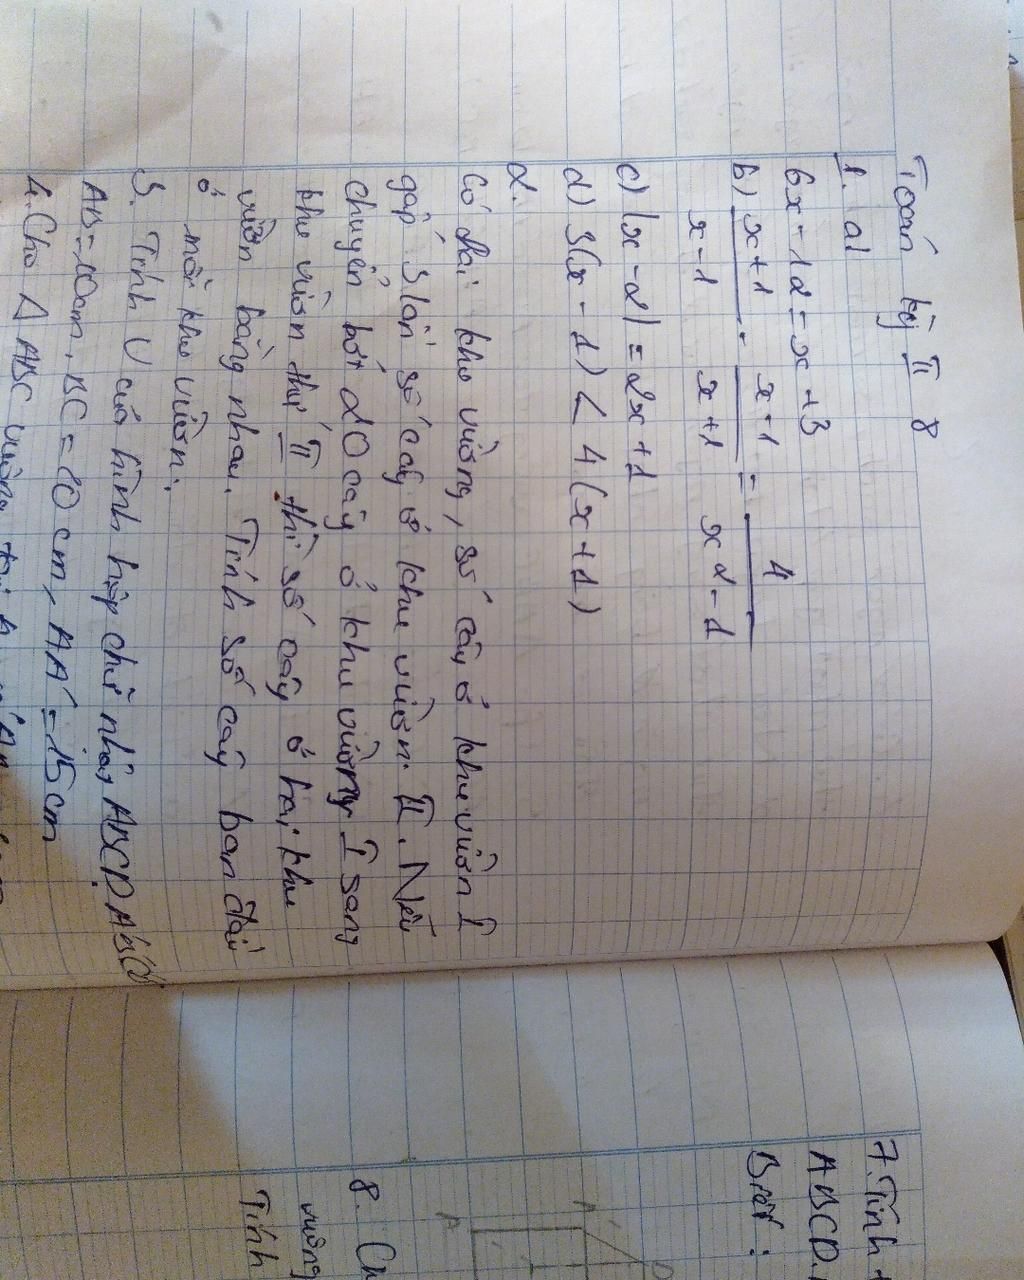 Toán kỳ II 8
1. a)
6x - 12 = x + 3
b) x+1 / x-1 - x-1 / x+1 = 4 / x2-1
c) |x - 2| = 2x + 1
d) 3(x - 1) < 4(x + 1)
2.
Có hai khu vường, số cây ở khu vườn I
gấp 3 lần số cây ở khu vườn II. Nếu
chuyển bớt 20 cây ở khu vường I sang
khu vườn thứ II thì số cây ở hai khu
vườn bằng nhau. Tính số cây ban đầu
ở mỗi khu vườn.
3. Tính V của hình hộp chữ nhật ABCD
AB = 10cm, BC = 20 cm, AA' = 15cm
4. Cho Δ ABC vuông
7. Tính
ABCD.
Biết:
A'
A
D
8. Ch
vuông
Tính